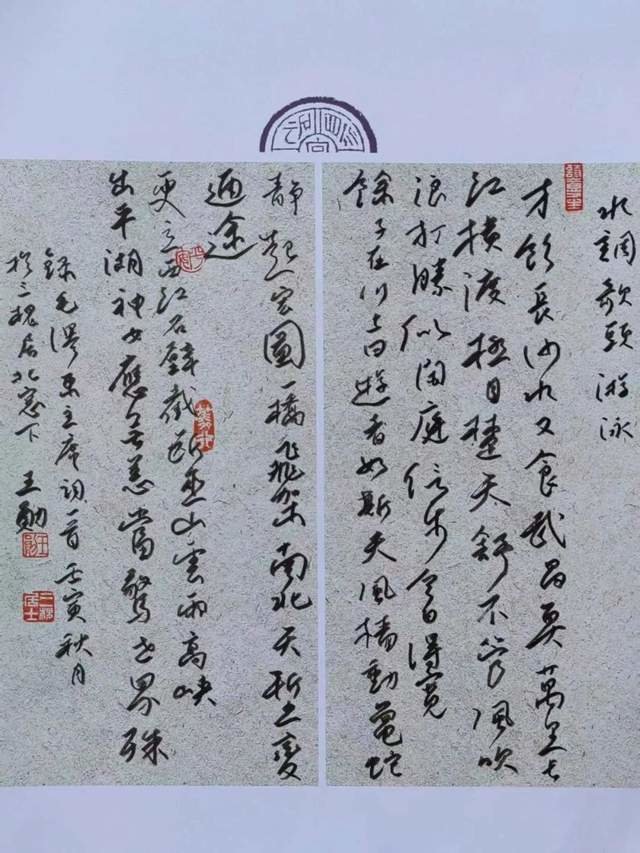 水調歌頭 游泳
才飲長沙水又食武昌魚萬里長
江横渡極目楚天舒不管風吹
浪打勝似闲庭信步今日得寬
餘子在川上曰逝者如斯夫風檣動龜蛇
静起宏圖一橋飛架南北天塹變
通途
更立西江石壁截斷巫山雲雨高峽
出平湖神女應無恙當驚世界殊
錄毛澤東主席詞一首壬寅秋月
於三槐居北窓下 王勛
三槐居士